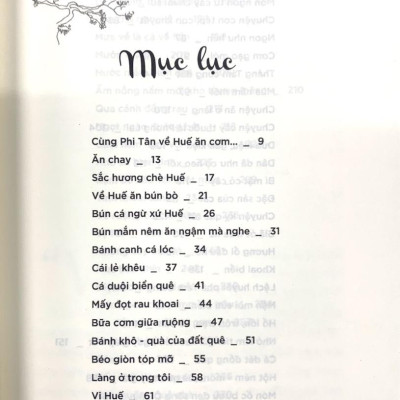 Mục lục
Cùng Phi Tân về Huế ăn cơm... _ 9
Ăn chay _ 13
Sắc hương chè Huế _ 17
Về Huế ăn bún bò _ 21
Bún cá ngừ xứ Huế _ 26
Bún mắm nêm ăn ngậm mà nghe _ 31
Bánh canh cá lóc _ 34
Cái lẻ khêu _ 37
Cá duội biển quê _ 41
Mấy đọt rau khoai _ 44
Bữa cơm giữa ruộng _ 47
Bánh khô - quà của đất quê _ 51
Béo giòn tóp mỡ _ 55
Làng ở trong tôi _ 58
Vị Huế _ 61